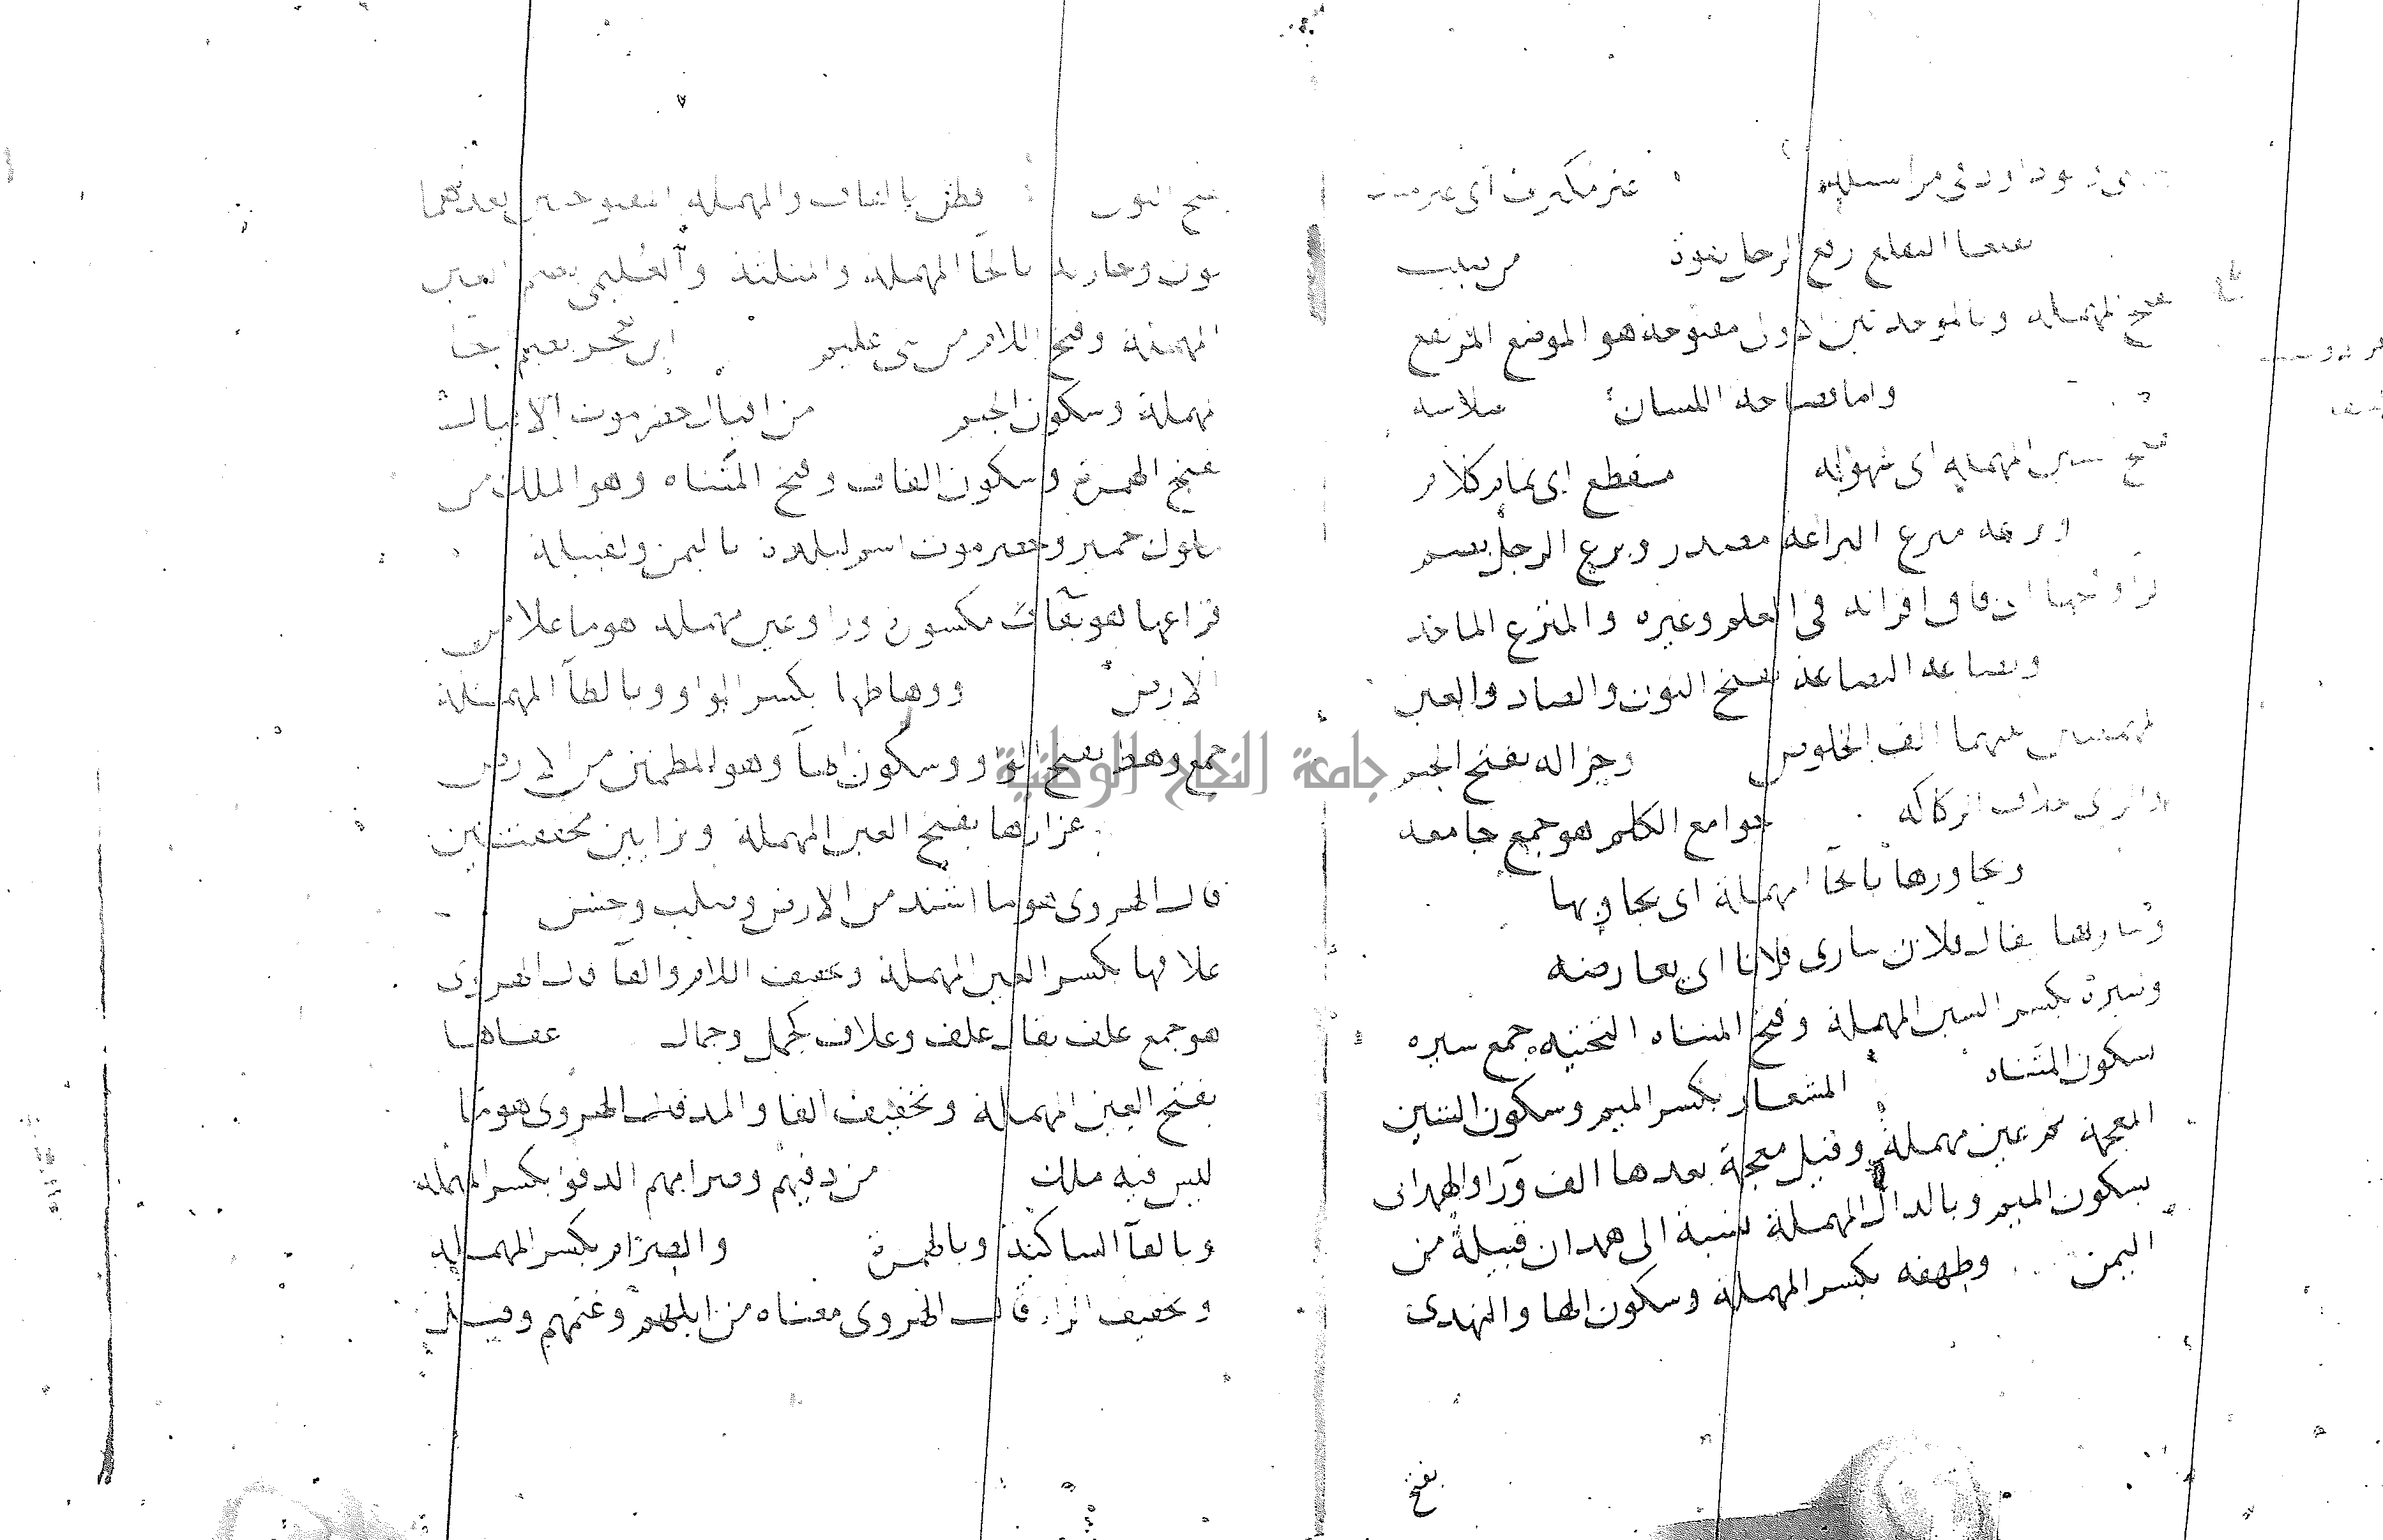 داود في مراسيله غير مكترث اى غير
رفع الرجل يعود من صبب
بفتح المهملة وبالموحدتين الاولى مفتوحة هو الموضع المرتفع
واما فصاحة اللسان سلاسه
بفتح السين المهملة اى سهوله مقطع اى تمام كلام
البراعة مصدر وبرع الرجل بضم
الرا وفتحها اى فاق اقرانه في العلم وغيره والمنزع الماخذ
ونصاعه النصاعة بفتح النون والصاد والعين
المهملتين بينهما الف الخلوص وجزاله بفتح الجيم
والزاى خلاف الركاكه جوامع الكلم هو جمع جامعه
ويحاورها بالحا المهملة اى يجاوبها
ويباريها يقال فلان يبارى فلانا اى يعارضه
وسيره بكسر السين المهملة وفتح المثناه التحتيه جمع سيره
بسكون المثناه المشعار بكسر الميم وسكون الشين
المعجمة ثم عين مهملة وقيل معجمة بعدها الف ورا والهمدانى
بسكون الميم وبالدال المهملة نسبة الى همدان قبيلة من
اليمن وطهفه بكسر المهملة وسكون الها والنهدى
بفتح
بفتح النون قطن بالقاف والمهملة المفتوحتين بعدهما
نون وحارثه بالحا المهملة والمثلثة والعليمى بضم العين
المهملة وفتح اللام من بنى عليم ابن حجر بضم الحا
المهملة وسكون الجيم من اقيال حضرموت الاقيال
بفتح الهمزة وسكون القاف وفتح المثناه وهو الملك من
ملوك حمير وحضرموت اسم لبلده باليمن ولقبيلة
فراعها هو بفا مكسوره ورا وعين مهمله هو ما علا من
الارض ووهاطها بكسر الواو وبالطا المهملة
جمع وهط بفتح الواو وسكون الها وهو المطمئن من الارض
عزازها بفتح العين المهملة وزايين مخففتين
قال الهروى هو ما اشتد من الارض وصلب وخشن
علافها بكسر العين المهملة وتخفيف اللام والفا قال الهروى
هو جمع علف يقال علف وعلاف كجمل وجمال عفاها
بفتح العين المهملة وتخفيف الفا والمد قال الهروى هو ما
ليس فيه ملك من دفئهم وصرامهم الدفؤ بكسر المهملة
وبالفا الساكنة وبالهمزة والصرام بكسر المهملة
وتخفيف الرا قال الهروى معناه من ابلهم وغنمهم وقيل
جامعة النجاح الوطنية